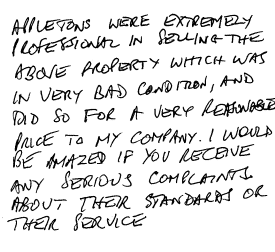 APPLETONS WERE EXTREMELY
PROFESSIONAL IN SELLING THE
ABOVE PROPERTY WHICH WAS
IN VERY BAD CONDITION, AND
DID SO FOR A VERY REASONABLE
PRICE TO MY COMPANY. I WOULD
BE AMAZED IF YOU RECEIVE
ANY SERIOUS COMPLAINTS
ABOUT THEIR STANDARDS OR
THEIR SERVICE